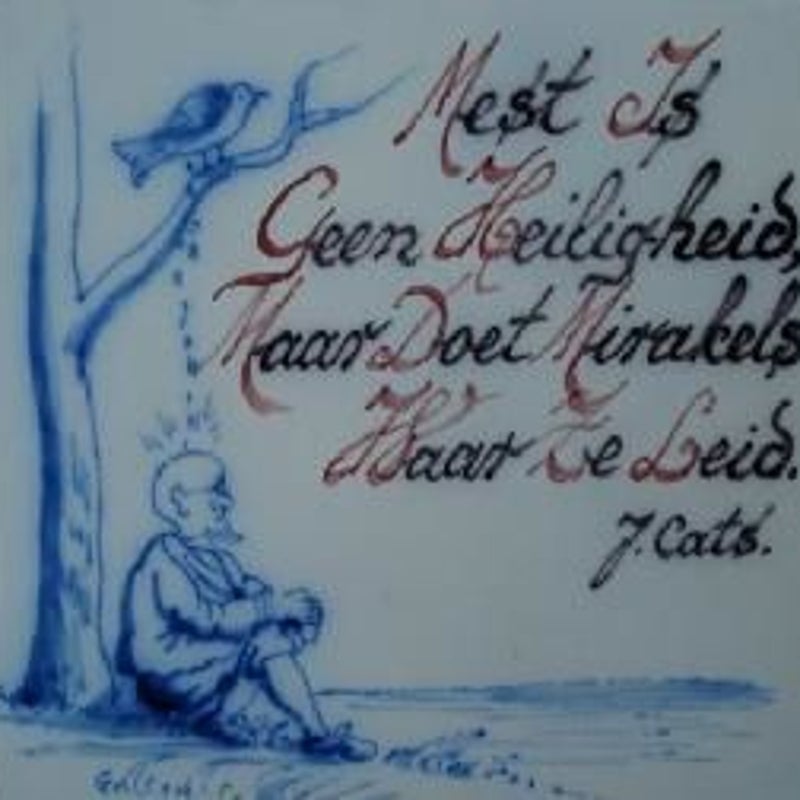 Mest Is
Geen Heiligheid,
Maar Doet Mirakels
Waar Ze Leid.
J. Cats.